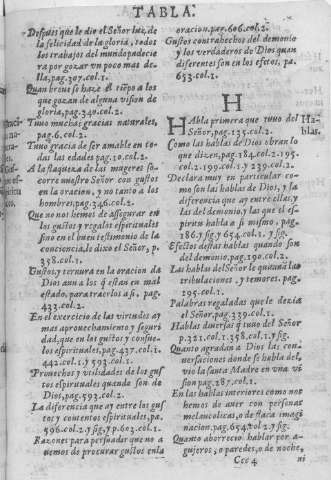 TABLA.
Despues que le dio el Señor luz, de
la felicidad de la gloria, todos
los trabajos del mundo padecie
ra por gozar vn poco mas de-
lla, pag.307.col.1.
Quan breue se haze el tiẽpo a los
que gozan de alguna vision de
gloria, pag.340.col.2.
Tuuo muchas gracias naturales,
pag.6.col.2.
Tuuo gracia de ser amable en to
das las edades pag.10.col.2.
A la flaqueza de las mugeres so-
corre nuestro Señor con gustos
en la oracion, y no tanto a los
hombres, pag.346.col.2.
Que no nos hemos de assegurar en
los gustos y regalos espirituales
sino en el buen testimonio de la
conciencia, lo dixo el Señor, p.
358.col.1.
Gustos, y ternura en la oracion da
Dios aun a los q̃ estan en mal
estado, para traerlos a si, pag.
433.col.2.
En el exercicio de las virtudes ay
mas aprouechamiento y seguri
dad, que en los gustos y consue-
los espirituales, pag.437.col.1.
442.col.1.y 593.col.1.
Prouechos y vtilidades de los gus
tos espirituales quando son de
Dios, pag.593.col.2.
La diferencia que ay entre los gus
tos y contentos espirituales, pa.
596.col.2.y sig, y p.603.col.1.
Razones para persuadar que no a
uemos de procurar gustos en la
oracion. pag.606.col.2.
Gustos contrahechos del demonio
y los verdaderos de Dios quan
diferentes son en los efetos, pa.
653.col.2.
H
HAbla primera que tuuo del
Señor, pag.135.col.2.
Ha-
blas.
Como las hablas de Dios obran lo
que dizen, pag.184.col.2.195.
col.2.199.col.1.y 239.col.2.
Declara muy en particular co-
mo son las hablas de Dios, y la
diferencia que ay entre ellas, y
las del demonio, y las que el es-
piritu habla a si mismo, pag.
186.y sig, y 654.col.1.y sig.
Efectos destas hablas quando son
del demonio, pag.190.col.2.
Las hablas del Señor le quitauã las
tribulaciones, y temores. pag.
295.col.1.
Palabras regaladas que le dezia
el Señor, pag.339.col.1.
Hablas diuersas q̃ tuuo del Señor
p.321.col.1.358.col.1.y sig.
Quanto agradan a Dios las con-
uersaciones donde se habla del,
vio la santa Madre en vna vi
sion pag.287.col.1.
En las hablas interiores como nos
hemos de auer con personas
melancolicas, o de flaca imagi
nacion, pag.654.col.2.y sig.
Quanto aborrecio hablar por a-
gujeros, o paredes, o de noche,
Ccc 4
ni